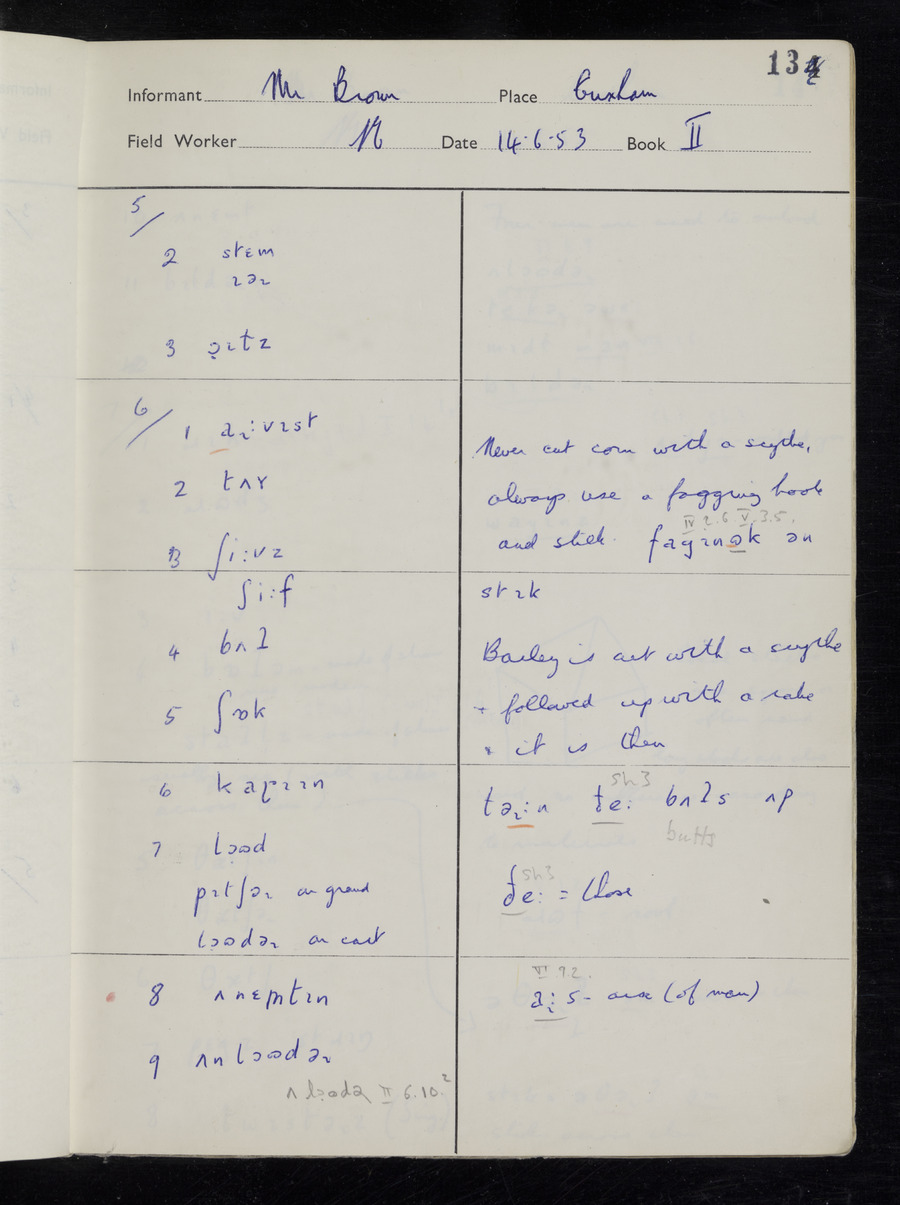 134
Informant Mr Brown Place Cuxham
Field Worker Date 14·6·53 Book II
5/
2 stɛm
ɪəɾ
3 əɾtz
6/
1 aɾːvɪst
2 tʌɤ
3 ʃiːvz
ʃiːf
4 bʌʔ
5 ʃɒk
6 kaɾɪɪn
7 lɔəd
pɪtʃəɾ on ground
lɔədəɾ on cart
8 ʌnɛmtɪn
9 ʌnlɔədəɾ
ʌlɔədə II 6.10.²
Never cut corn with a scythe,
always use a fagging hook
IV 2.6. V.3.5.
and stick. fagɪnək ən
stɪk
Barley is cut with a scythe
+ followed up with a rake
+ it is then
sh3
təɾːn ðeː bʌʔs ʌp
butts
sh3
ðeː = those
VI 9 2.
aɾːs - arse (of man)